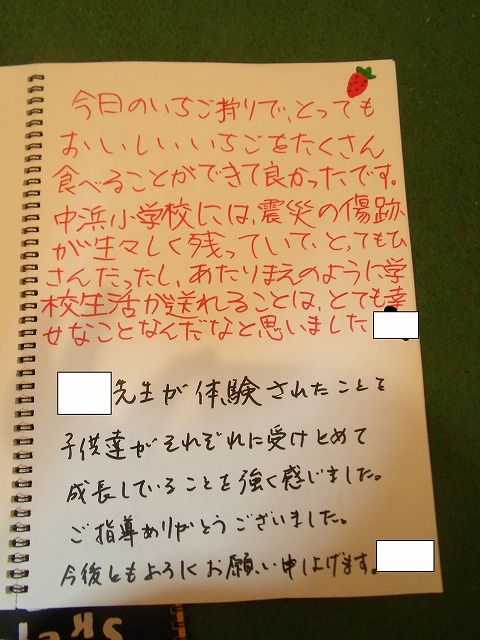 今日のいちご狩りで、とっても
おいしいいちごをたくさん
食べることができて良かったです。
中浜小学校には、震災の傷跡
が生々しく残っていて、とってもひ
さんだったし、あたりまえのように学
校生活が送れることは、とても幸
せなことなんだなと思いました
先生が体験されたことを
子供達がそれぞれに受けとめて
成長していることを強く感じました。
ご指導ありがとうございました。
今後ともよろしくお願い申し上げます。
Ske